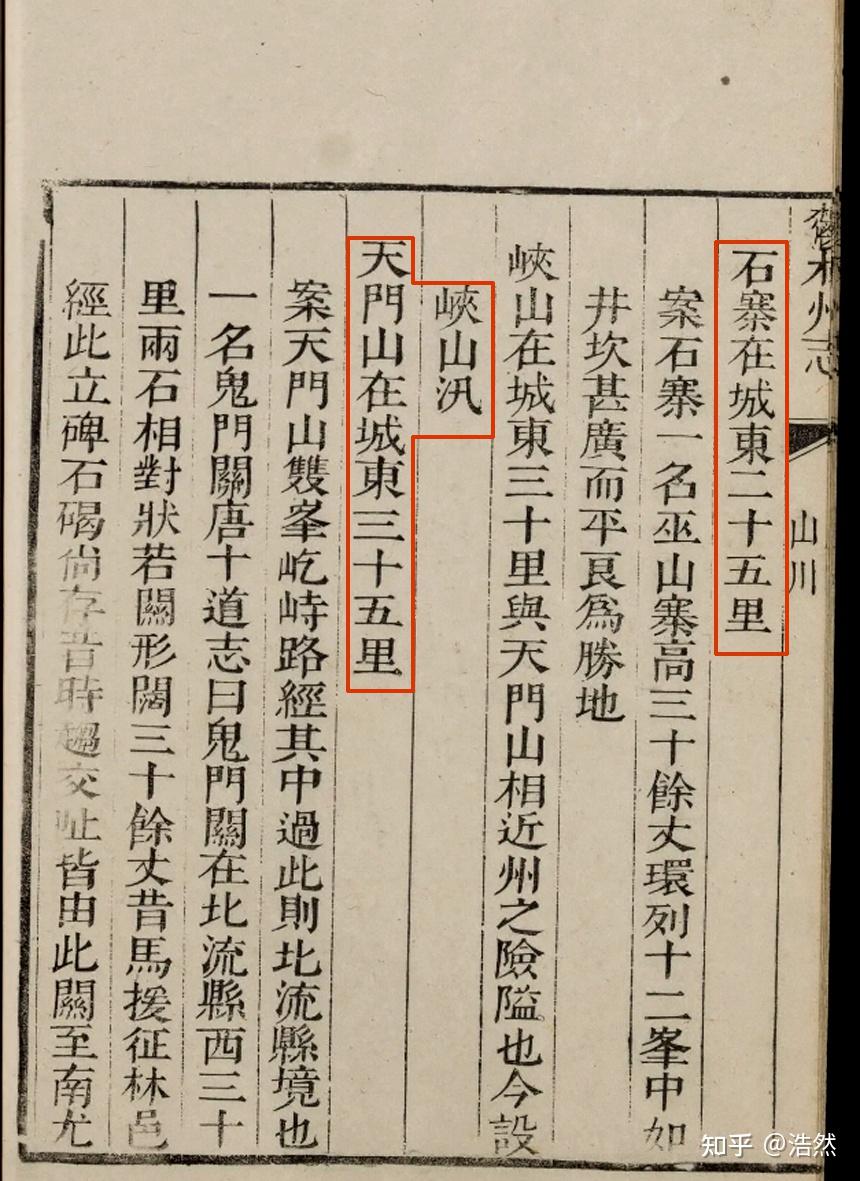 鬱林州志
山川
石寨在城東二十五里
案石寨一名巫山寨高三十餘丈環列十二峯中如
井坎甚廣而平良爲勝地
峽山在城東三十里與天門山相近州之險隘也今設
峽山汛
天門山在城東三十五里
案天門山雙峯屹峙路經其中過此則北流縣境也
一名鬼門關唐十道志曰鬼門關在北流縣西三十
里兩石相對狀若關形闊三十餘丈昔馬援征林邑
經此立碑石碣尚存昔時趨交趾皆由此關至南尤
知乎 @浩然